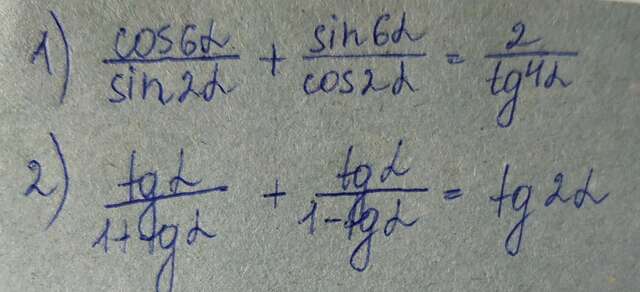 1) cos6α/sin2α + sin6α/cos2α = 2/tg4α
2) tgα/1+tgα + tgα/1-tgα = tg2α